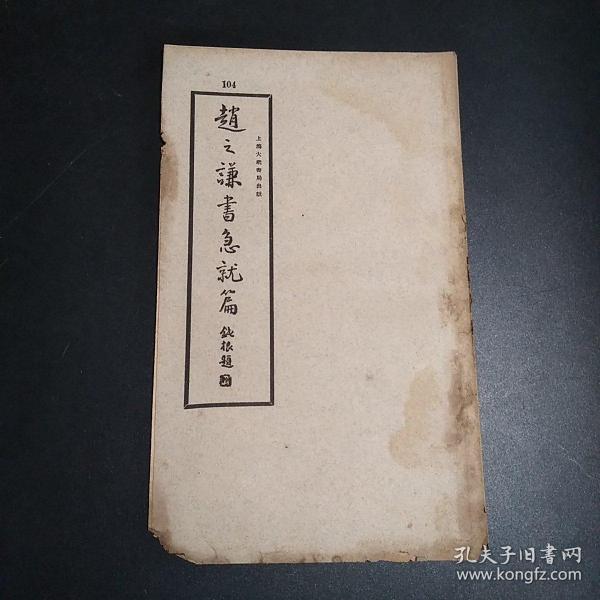 104
上海大衆書局出版
趙之謙書急就篇
鈍根題
孔夫子旧書网
www.kongfz.com